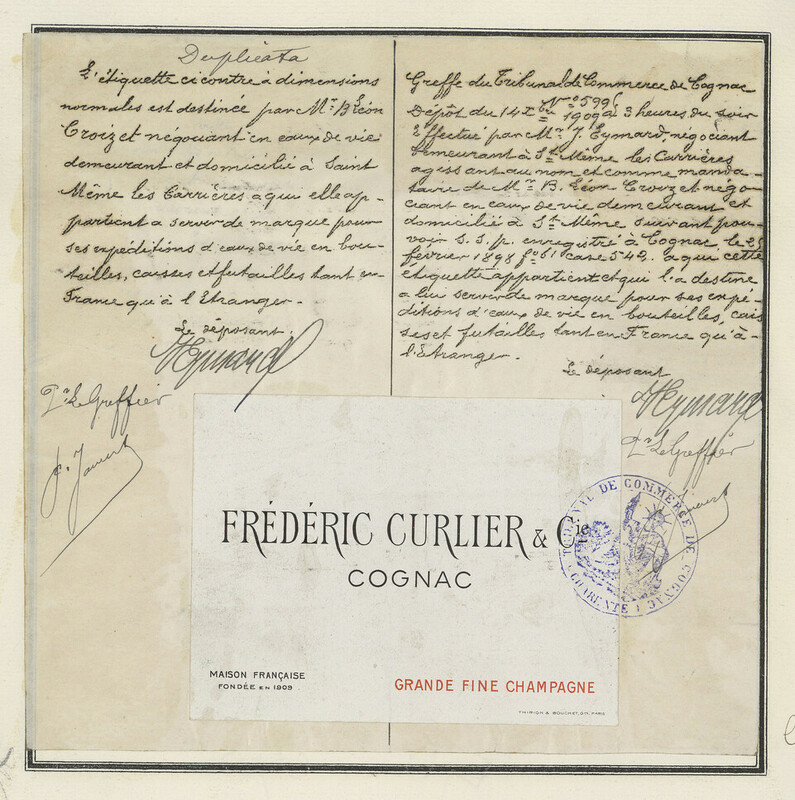 Duplicata
L'étiquette ci contre à dimensions
normales est destinée par Mr. B Léon
Croizet négociant en eaux de vie
demeurant et domicilié à Saint
Même les Carrières a qui elle ap-
partient a servir de marque pour
ses expéditions d'eaux de vie en bou-
teilles, caisses et futailles tant en
France qu'à l'Etranger.-
Le déposant.
J Eymard
Pr Le Greffier
Greffe du Tribunal de Commerce de Cognac
No 599
Dépôt du 14 1909 à 3 heures du soir
Effectué par Mr. J. Eymard, négociant
demeurant à St. Même les Carrières
agissant au nom et comme manda-
taire de Mr. B. Léon Croizet négo-
ciant en eaux de vie demeurant et
domicilié à St. Même suivant pou-
voir s. s. p. enregistré à Cognac, le 25
février 1898 fo 61 case 542. à qui cette
etiquette appartient et qui l'a destine
a lui servir de marque pour ses expé-
ditions d'eaux de vie en bouteilles, cais
ses et futailles, tant en France qu'à-
l'Etranger.
Le déposant
J Eymard
Pr Le Greffier
FRÉDÉRIC CURLIER & Cie
COGNAC
MAISON FRANÇAISE
FONDÉE EN 1909
GRANDE FINE CHAMPAGNE
THIRION & BOUCHET, GR. PARIS
TRIBUNAL DE COMMERCE DE COGNAC
(CHARENTE)